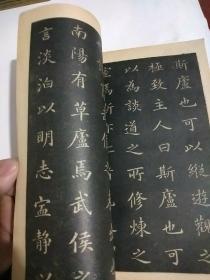 斯廬也可以縱遊觀之
極致主人曰斯廬也可
以為談道之所修煉之
南陽有草廬焉武侯之
言淡泊以明志寍静